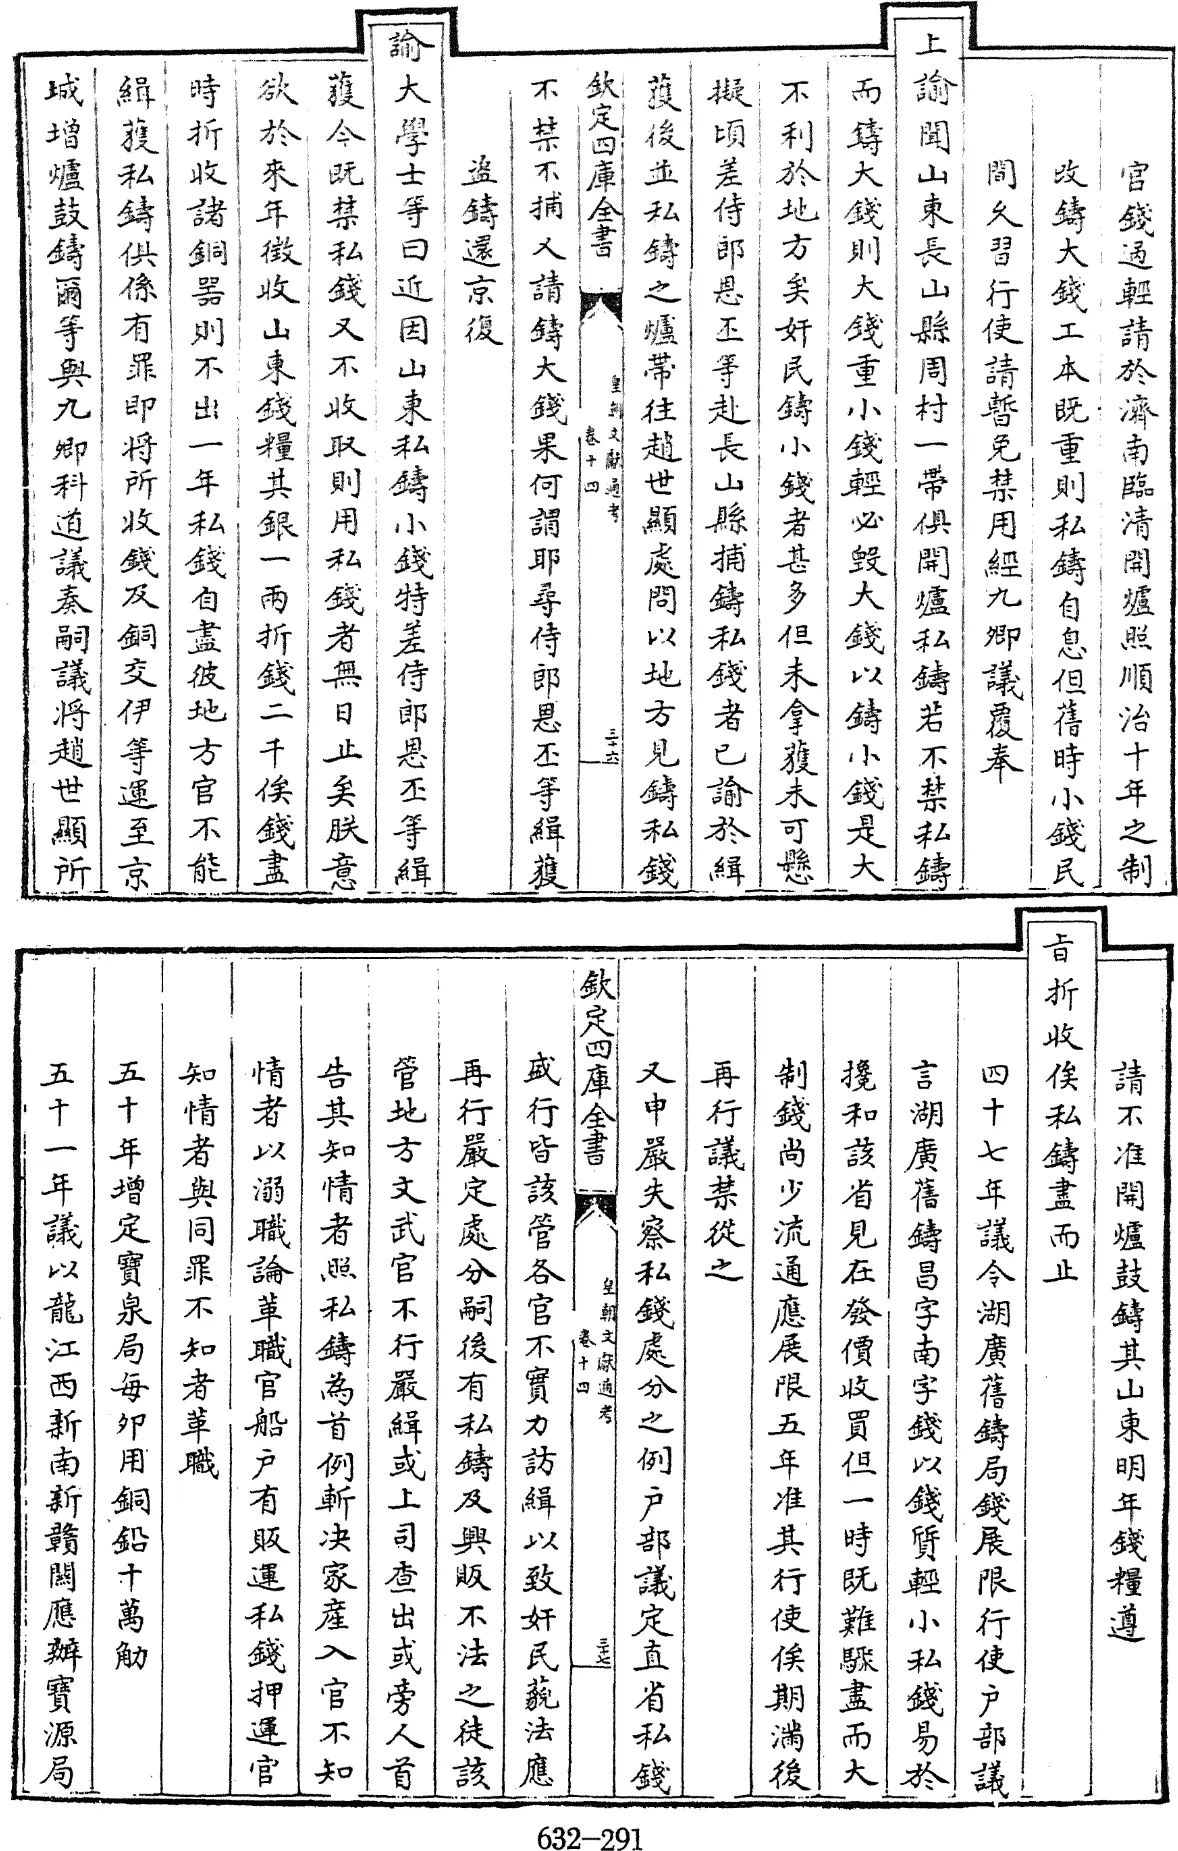 官錢過輕請於濟南臨清開爐照順治十年之制
改鑄大錢工本既重則私鑄自息但舊時小錢民
間久習行使請暫免禁用經九卿議覆奉
上諭聞山東長山縣周村一帶俱開爐私鑄若不禁私鑄
而鑄大錢則大錢重小錢輕必毀大錢以鑄小錢是大
不利於地方矣奸民鑄小錢者甚多但未拿獲未可懸
擬頃差侍郎恩丕等赴長山縣捕鑄私錢者已諭於緝
獲後並私鑄之爐帶往趙世顯處問以地方見鑄私錢
欽定四庫全書
皇朝文獻通考
卷十四
三十六
不禁不捕乂請鑄大錢果何謂耶尋侍郎恩丕等緝獲
盜鑄還京復
諭大學士等曰近因山東私鑄小錢特差侍郎恩丕等緝
獲今既禁私錢又不收取則用私錢者無日止矣朕意
欲於來年徵收山東錢糧其銀一兩折錢二千俟錢盡
時折收諸銅器則不出一年私錢自盡彼地方官不能
緝獲私鑄俱係有罪即將所收錢及銅交伊等運至京
城增爐鼓鑄爾等與九卿科道議奏嗣議將趙世顯所
請不准開爐鼓鑄其山東明年錢糧遵
旨折收俟私鑄盡而止
四十七年議令湖廣舊鑄局錢展限行使户部議
言湖廣舊鑄昌字南字錢以錢質輕小私錢易於
攙和該省見在發價收買但一時既難驟盡而大
制錢尚少流通應展限五年准其行使俟期滿後
再行議禁從之
又申嚴失察私錢處分之例户部議定直省私錢
欽定四庫全書
皇朝文獻通考
卷十四
三十七
盛行皆該管各官不實力訪緝以致奸民藐法應
再行嚴定處分嗣後有私鑄及興販不法之徒該
管地方文武官不行嚴緝或上司查出或旁人首
告其知情者照私鑄為首例斬決家產入官不知
情者以溺職論革職官船户有販運私錢押運官
知情者與同罪不知者革職
五十年增定寶泉局每卯用銅鉛十萬觔
五十一年議以龍江西新南新贛關應辦寶源局
632-291